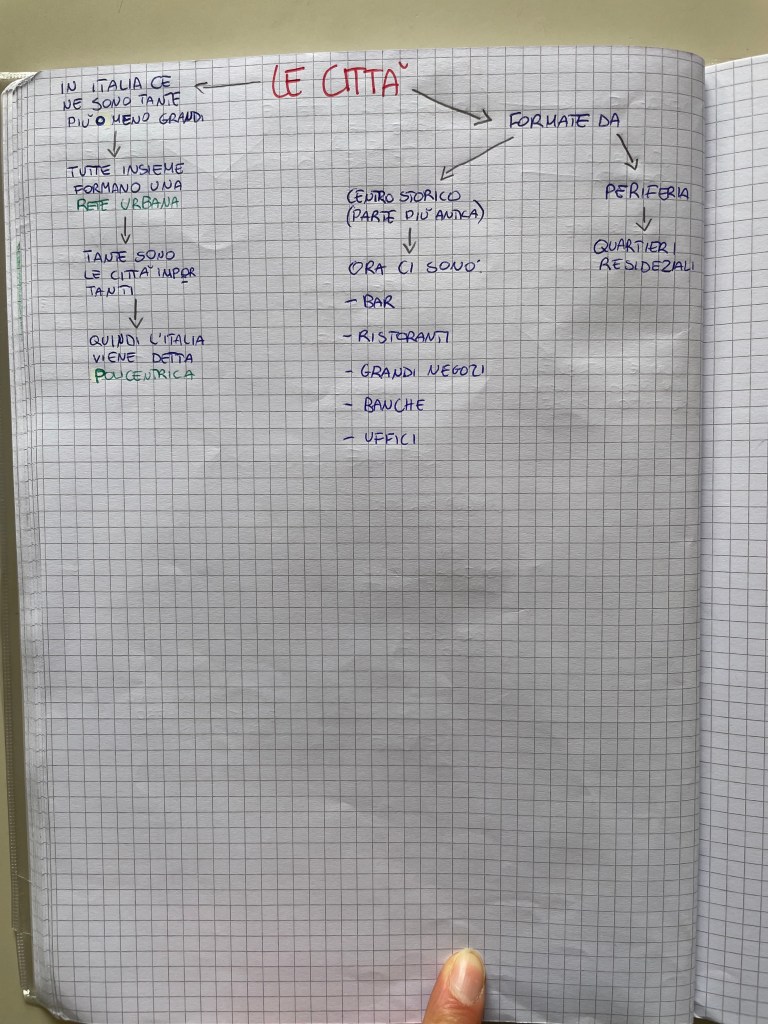 LE CITTÀ
IN ITALIA CE
NE SONO TANTE
PIÙ O MENO GRANDI
TUTTE INSIEME
FORMANO UNA
RETE URBANA
TANTE SONO
LE CITTÀ IMPOR
TANTI
QUINDI L'ITALIA
VIENE DETTA
POLICENTRICA
FORMATE DA
CENTRO STORICO
(PARTE PIÙ ANTICA)
ORA CI SONO:
- BAR
- RISTORANTI
- GRANDI NEGOZI
- BANCHE
- UFFICI
PERIFERIA
QUARTIERI
RESIDEZIALI